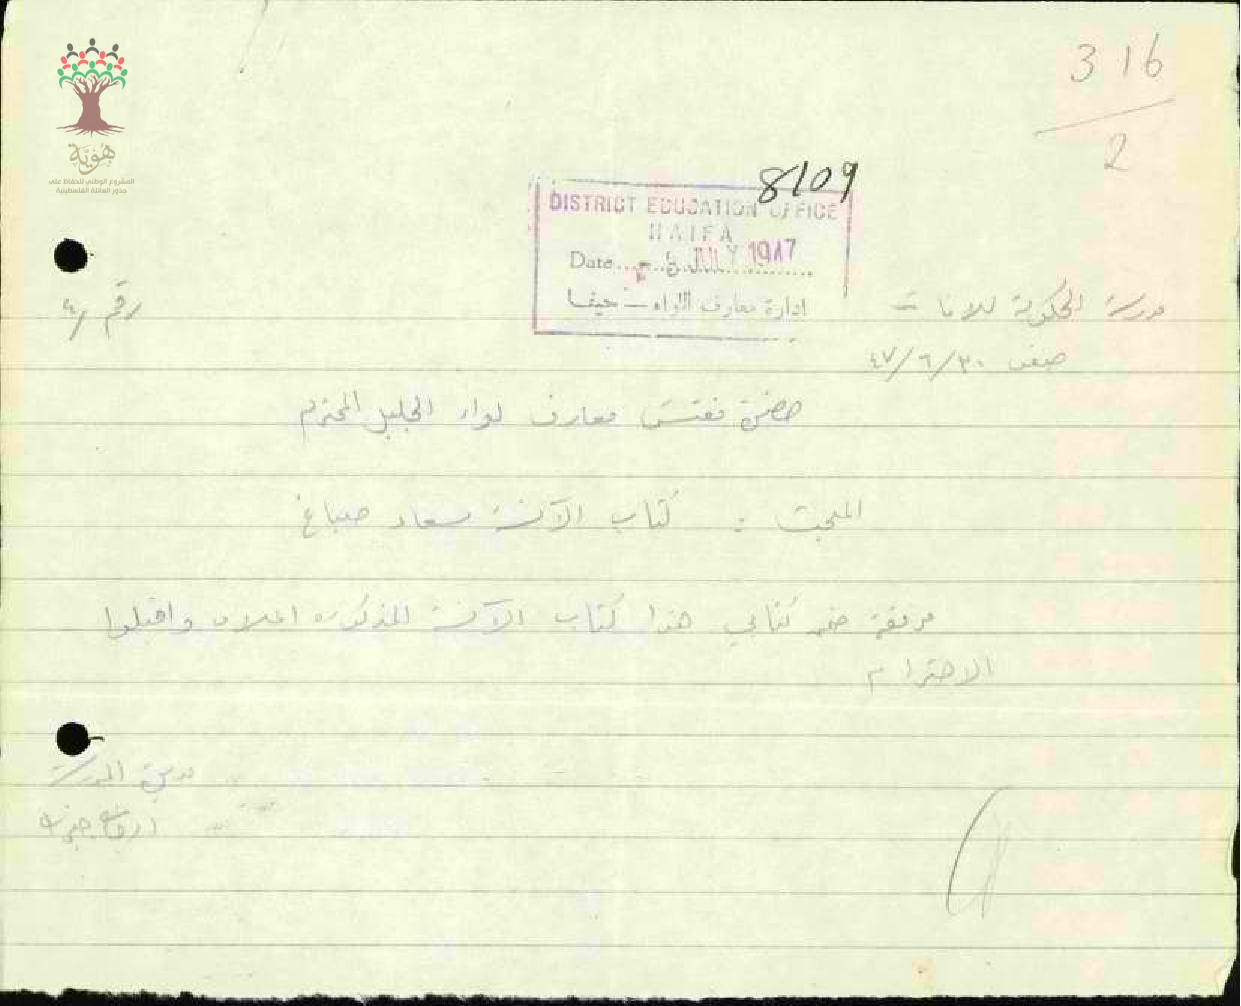 316
2
هُوِيَّة
المشروع الوطني للحفاظ على
جذور العائلة الفلسطينية
8109
DISTRICT EDUCATION OFFICE
HAIFA
Date 5 JULY 1947
ادارة معارف اللواء — حيفا
مدرسة الحكومة للاناث
رقم ٤/
صفد ٣٠/٦/٤٧
حضرة مفتش معارف لواء الجليل المحترم
المبحث : كتاب الآنسة سعاد صباغ
مرفقة ضمن كتابي هذا كتاب الآنسة المذكوره اعلاه واقبلوا
الاحترام
مديرة المدرسة